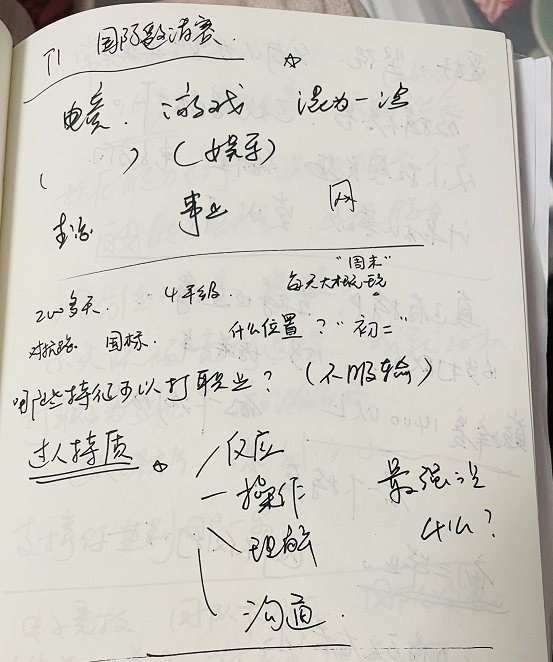 TI 国际邀请赛
电竞. 游戏 混为一谈
( ) (娱乐)
事业 网
"周末"
200多天. 4年级. 每天大概玩
对抗路 国标. 什么位置? "初二"
哪些特征可以打职业? (不服输)
过人特质 反应
操作 最强说
理解 什么?
沟通.